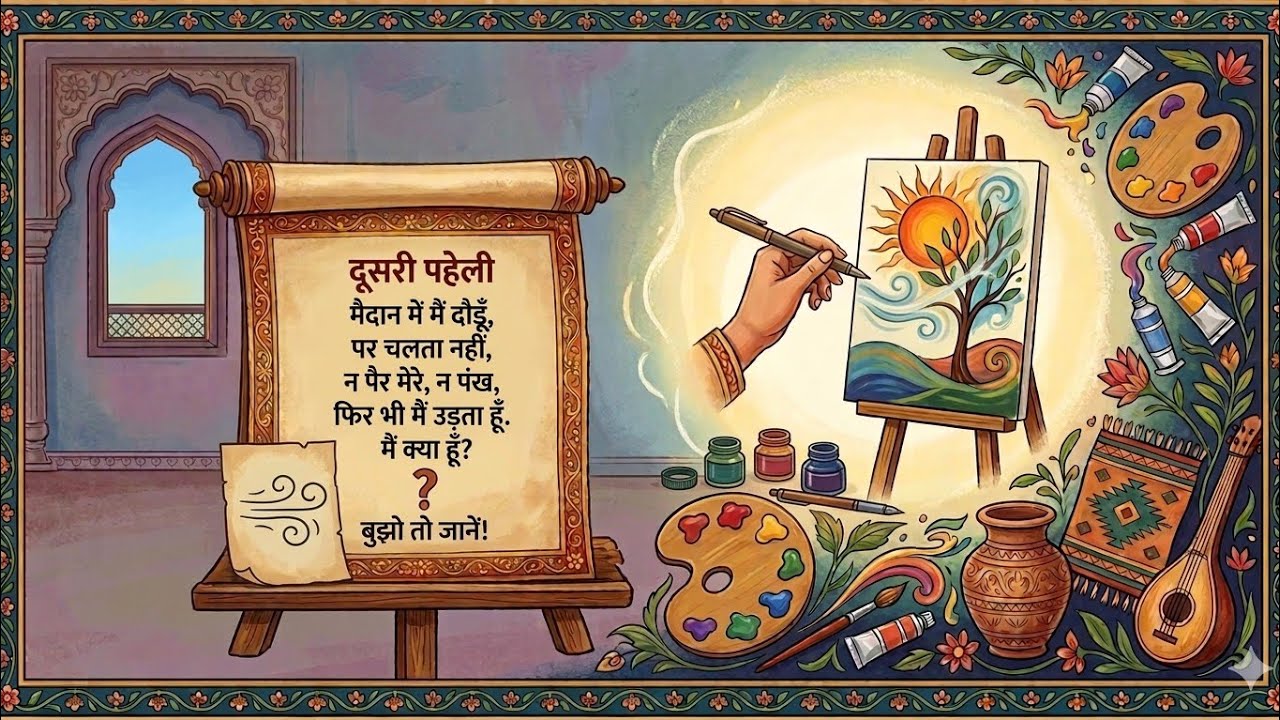 दूसरी पहेली
मैदान में मैं दौड़ूँ,
पर चलता नहीं,
न पैर मेरे, न पंख,
फिर भी मैं उड़ता हूँ.
मैं क्या हूँ?
?
बुझो तो जानें!